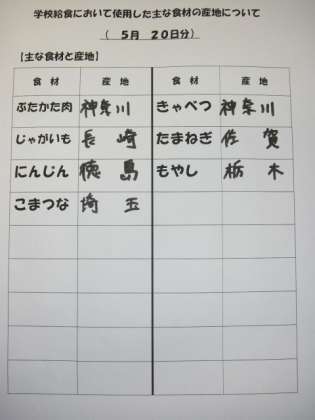 学校給食において使用した主な食材の産地について
( 5月 20日分)
【主な食材と産地】
食材 産地 食材 産地
ぶたかた肉 神奈川 きゃべつ 神奈川
じゃがいも 長崎 たまねぎ 佐賀
にんじん 徳島 もやし 栃木
こまつな 埼玉